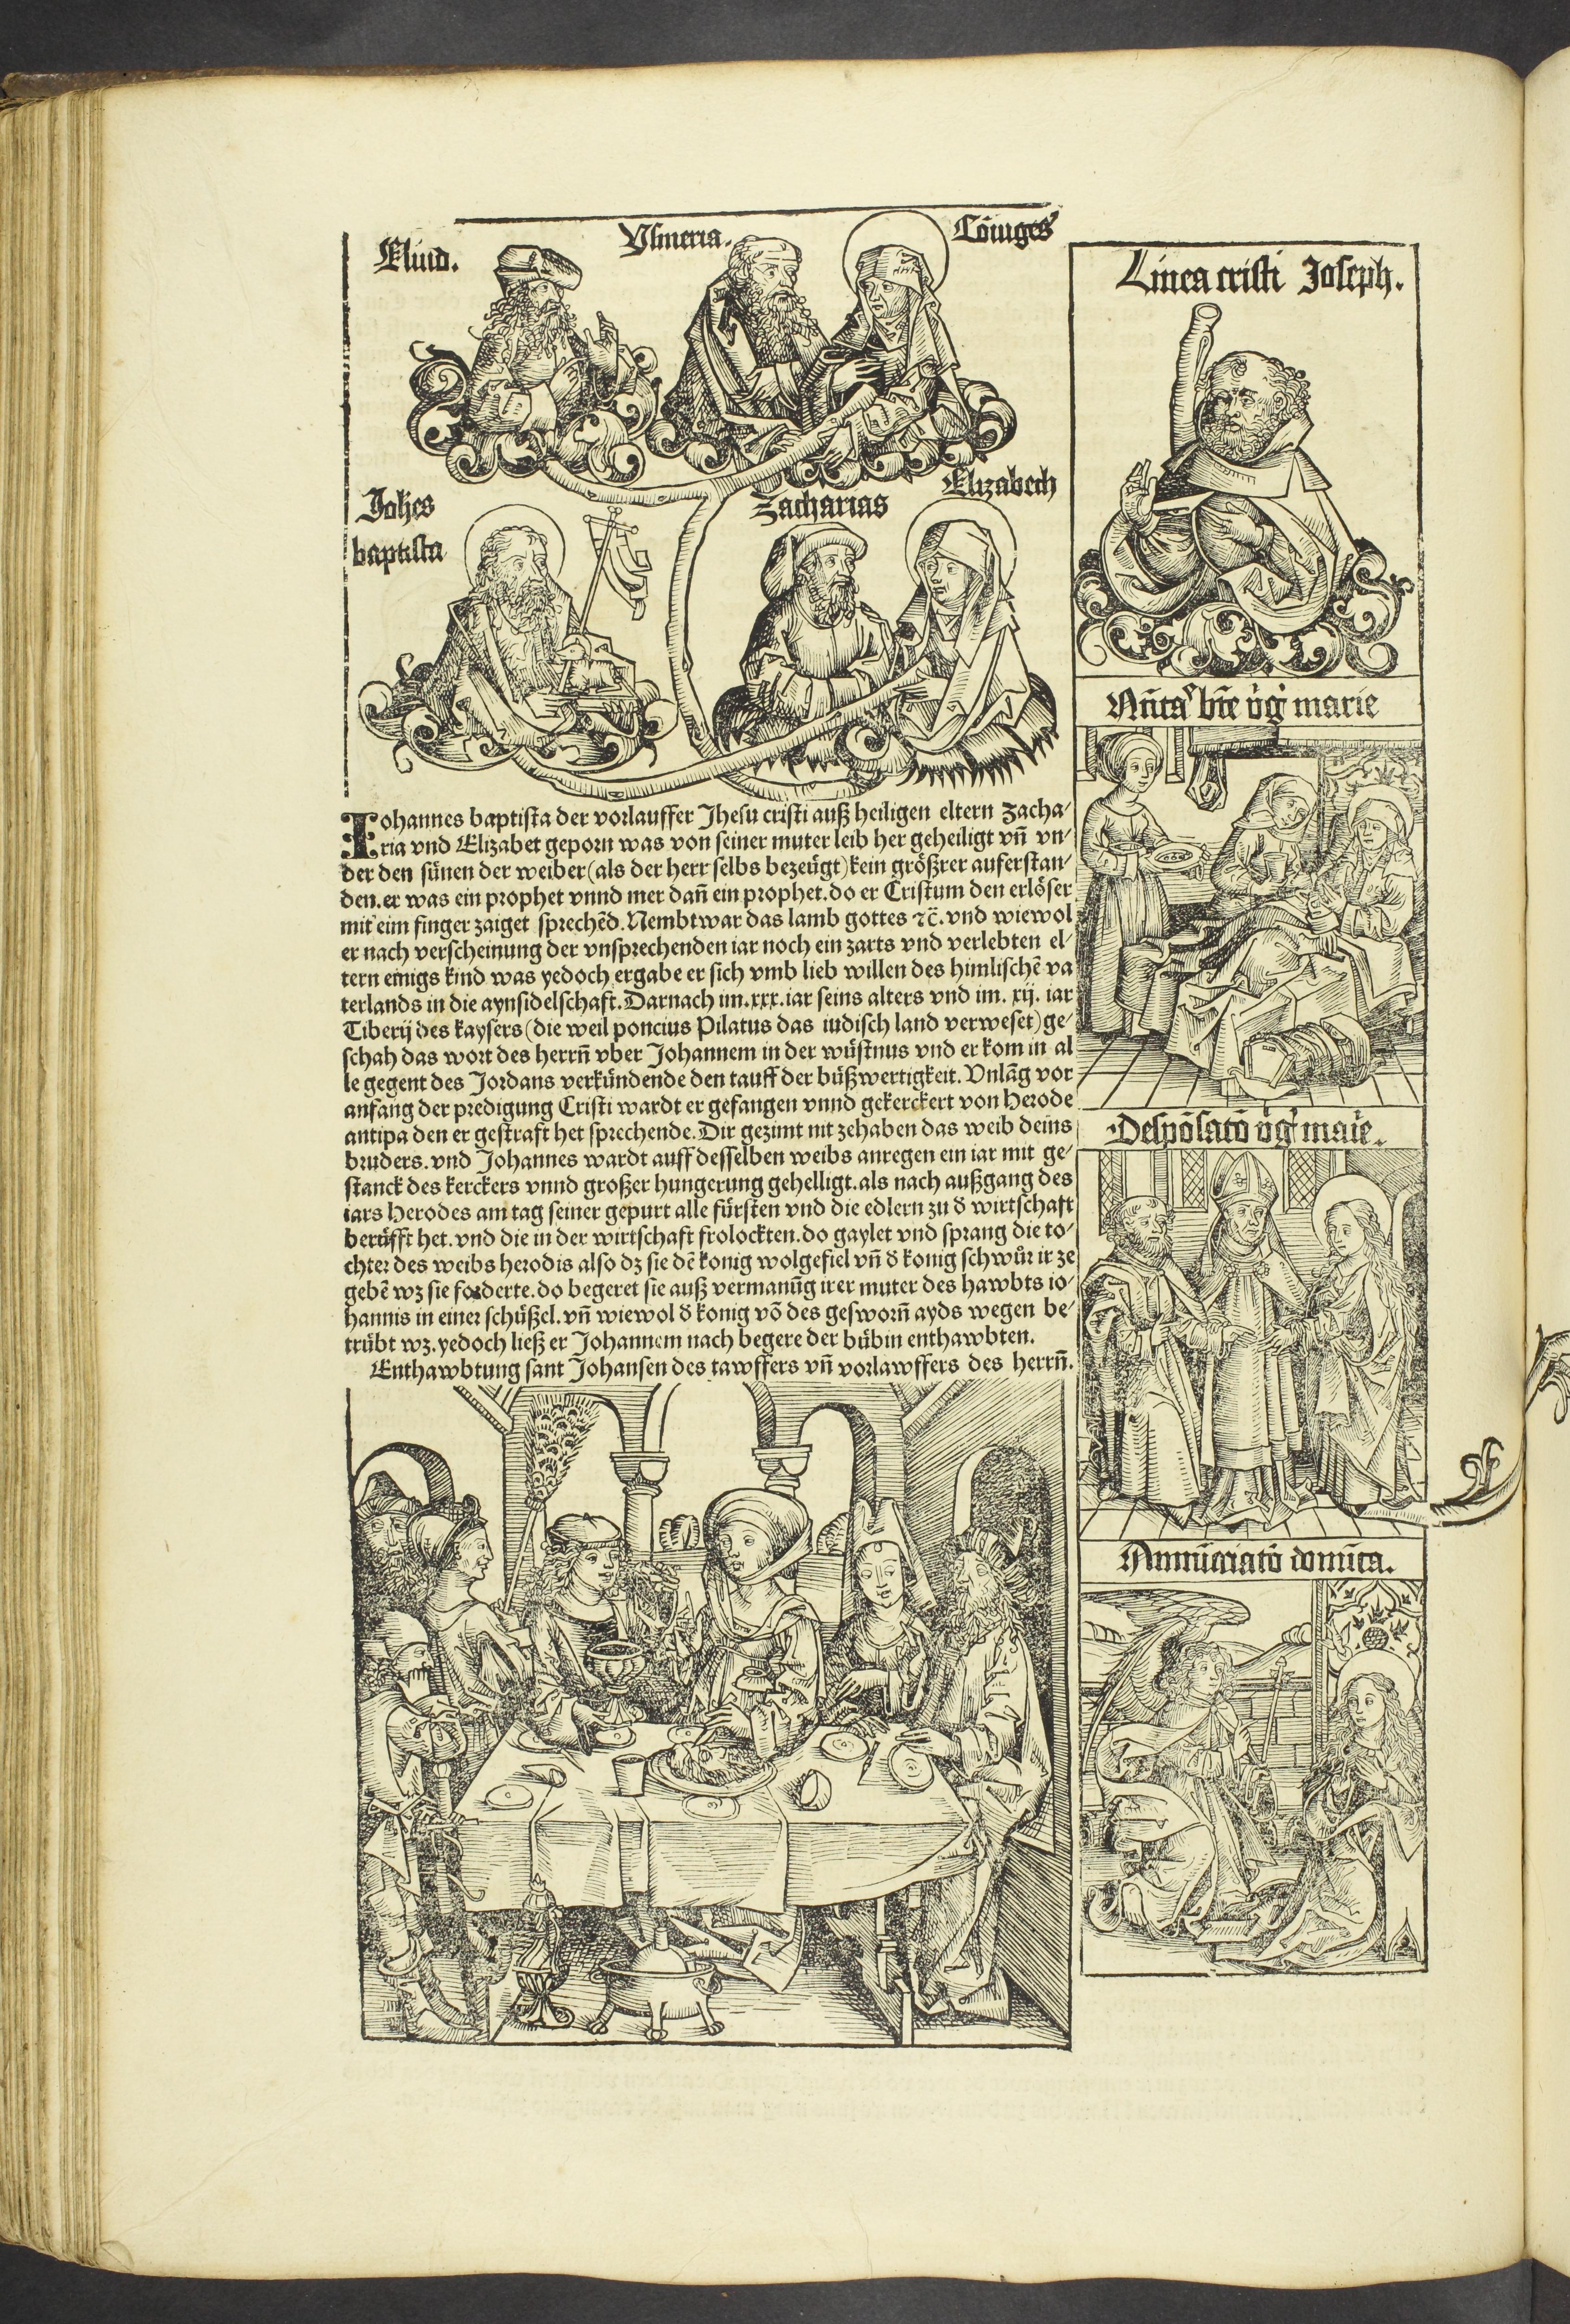 Eliud.
Ysmeria.
Cōiuges
Johēs
baptista
Zacharias
Elizabech
Johannes baptista der vorlauffer Jhesu cristi auß heiligen eltern Zacha⸗
ria vnd Elizabet geporn was von seiner muter leib her geheiligt vn̄ vn⸗
der den sünen der weiber (als der herr selbs bezeügt) kein größrer auferstan⸗
den. er was ein prophet vnnd mer dañ ein prophet. do er Cristum den erlöser
mit eim finger zaiget sprechēd. Nembt war das lamb gottes ⁊c̄. vnd wiewol
er nach verscheinung der vnsprechenden iar noch ein zarts vnd verlebten el⸗
tern einigs kind was yedoch ergabe er sich vmb lieb willen des himlischē va
terlands in die aynsidelschaft. Darnach im .xxx. iar seins alters vnd im .xij. iar
Tiberij des kaysers (die weil poncius Pilatus das iudisch land verweset) ge⸗
schah das wort des herrn̄ vber Johannem in der wüstnus vnd er kom in al
le gegent des Jordans verkündende den tauff der büßwertigkeit. Vnlāg vor
anfang der predigung Cristi wardt er gefangen vnnd gekerckert von Herode
antipa den er gestraft het sprechende. Dir gezimt nit zehaben das weib deins
bruders. vnd Johannes wardt auff desselben weibs anregen ein iar mit ge⸗
stanck des kerckers vnnd großer hungerung gehelligt. als nach außgang des
iars Herodes am tag seiner gepurt alle fürsten vnd die edlern zu d̄ wirtschaft
berüfft het. vnd die in der wirtschaft frolockten. do gaylet vnd sprang die to⸗
chter des weibs herodis also dz sie dē konig wolgefiel vn̄ d̄ konig schwůr ir ze
gebē wz sie forderte. do begeret sie auß vermanūg irer muter des hawbts io⸗
hannis in einer schüßel. vn̄ wiewol d̄ konig vō des gesworn̄ ayds wegen be⸗
trübt wz. yedoch ließ er Johannem nach begere der bübin enthawbten.
Enthawbtung sant Johansen des tawffers vn̄ vorlawffers des herrn̄.
Linea cristi Joseph.
Nt̄itas bt̄e v̄ḡ marie
Despōsatō v̄ḡ marie.
Annūciatō domīca.